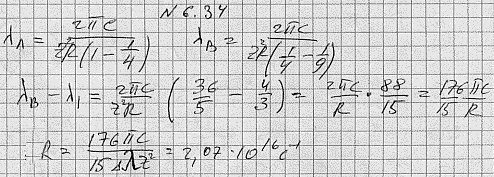 N 6.34
λ_Л = 2πc / z²R(1 − 1/4)   λ_B = 2πc / z²R(1/4 − 1/9)
λ_B − λ_1 = 2πc / z²R (36/5 − 4/3) = 2πc/R · 88/15 = 176πc / 15 R
∴ R = 176πc / 15 Δλ z² = 2,07 · 10¹⁶ c⁻¹